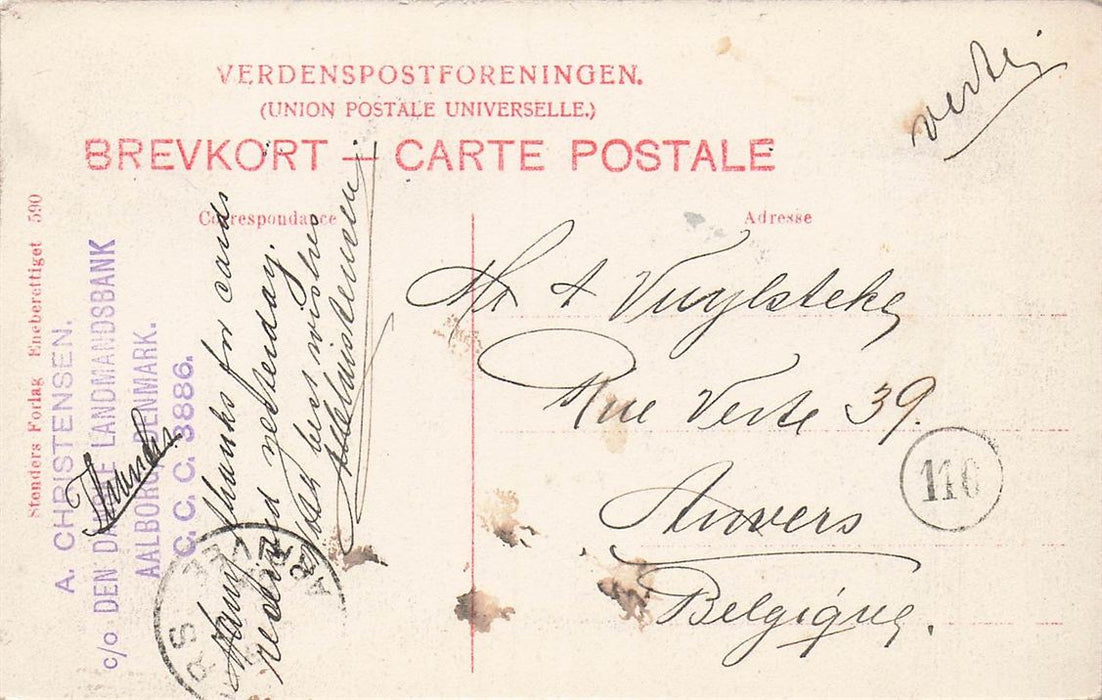 VERDENSPOSTFORENINGEN.
(UNION POSTALE UNIVERSELLE.)
BREVKORT — CARTE POSTALE
Correspondance
Adresse
Stenders Forlag Eneberettiget 590
A. CHRISTENSEN.
c/o DEN DANSKE LANDMANDSBANK
AALBORG, DENMARK.
C. C. C. 3886.
Many thanks for cards
received yesterday.
With best wishes
AChristensen
Mr A Vuylsteke
Rue Verte 39.
Anvers
Belgique.
110